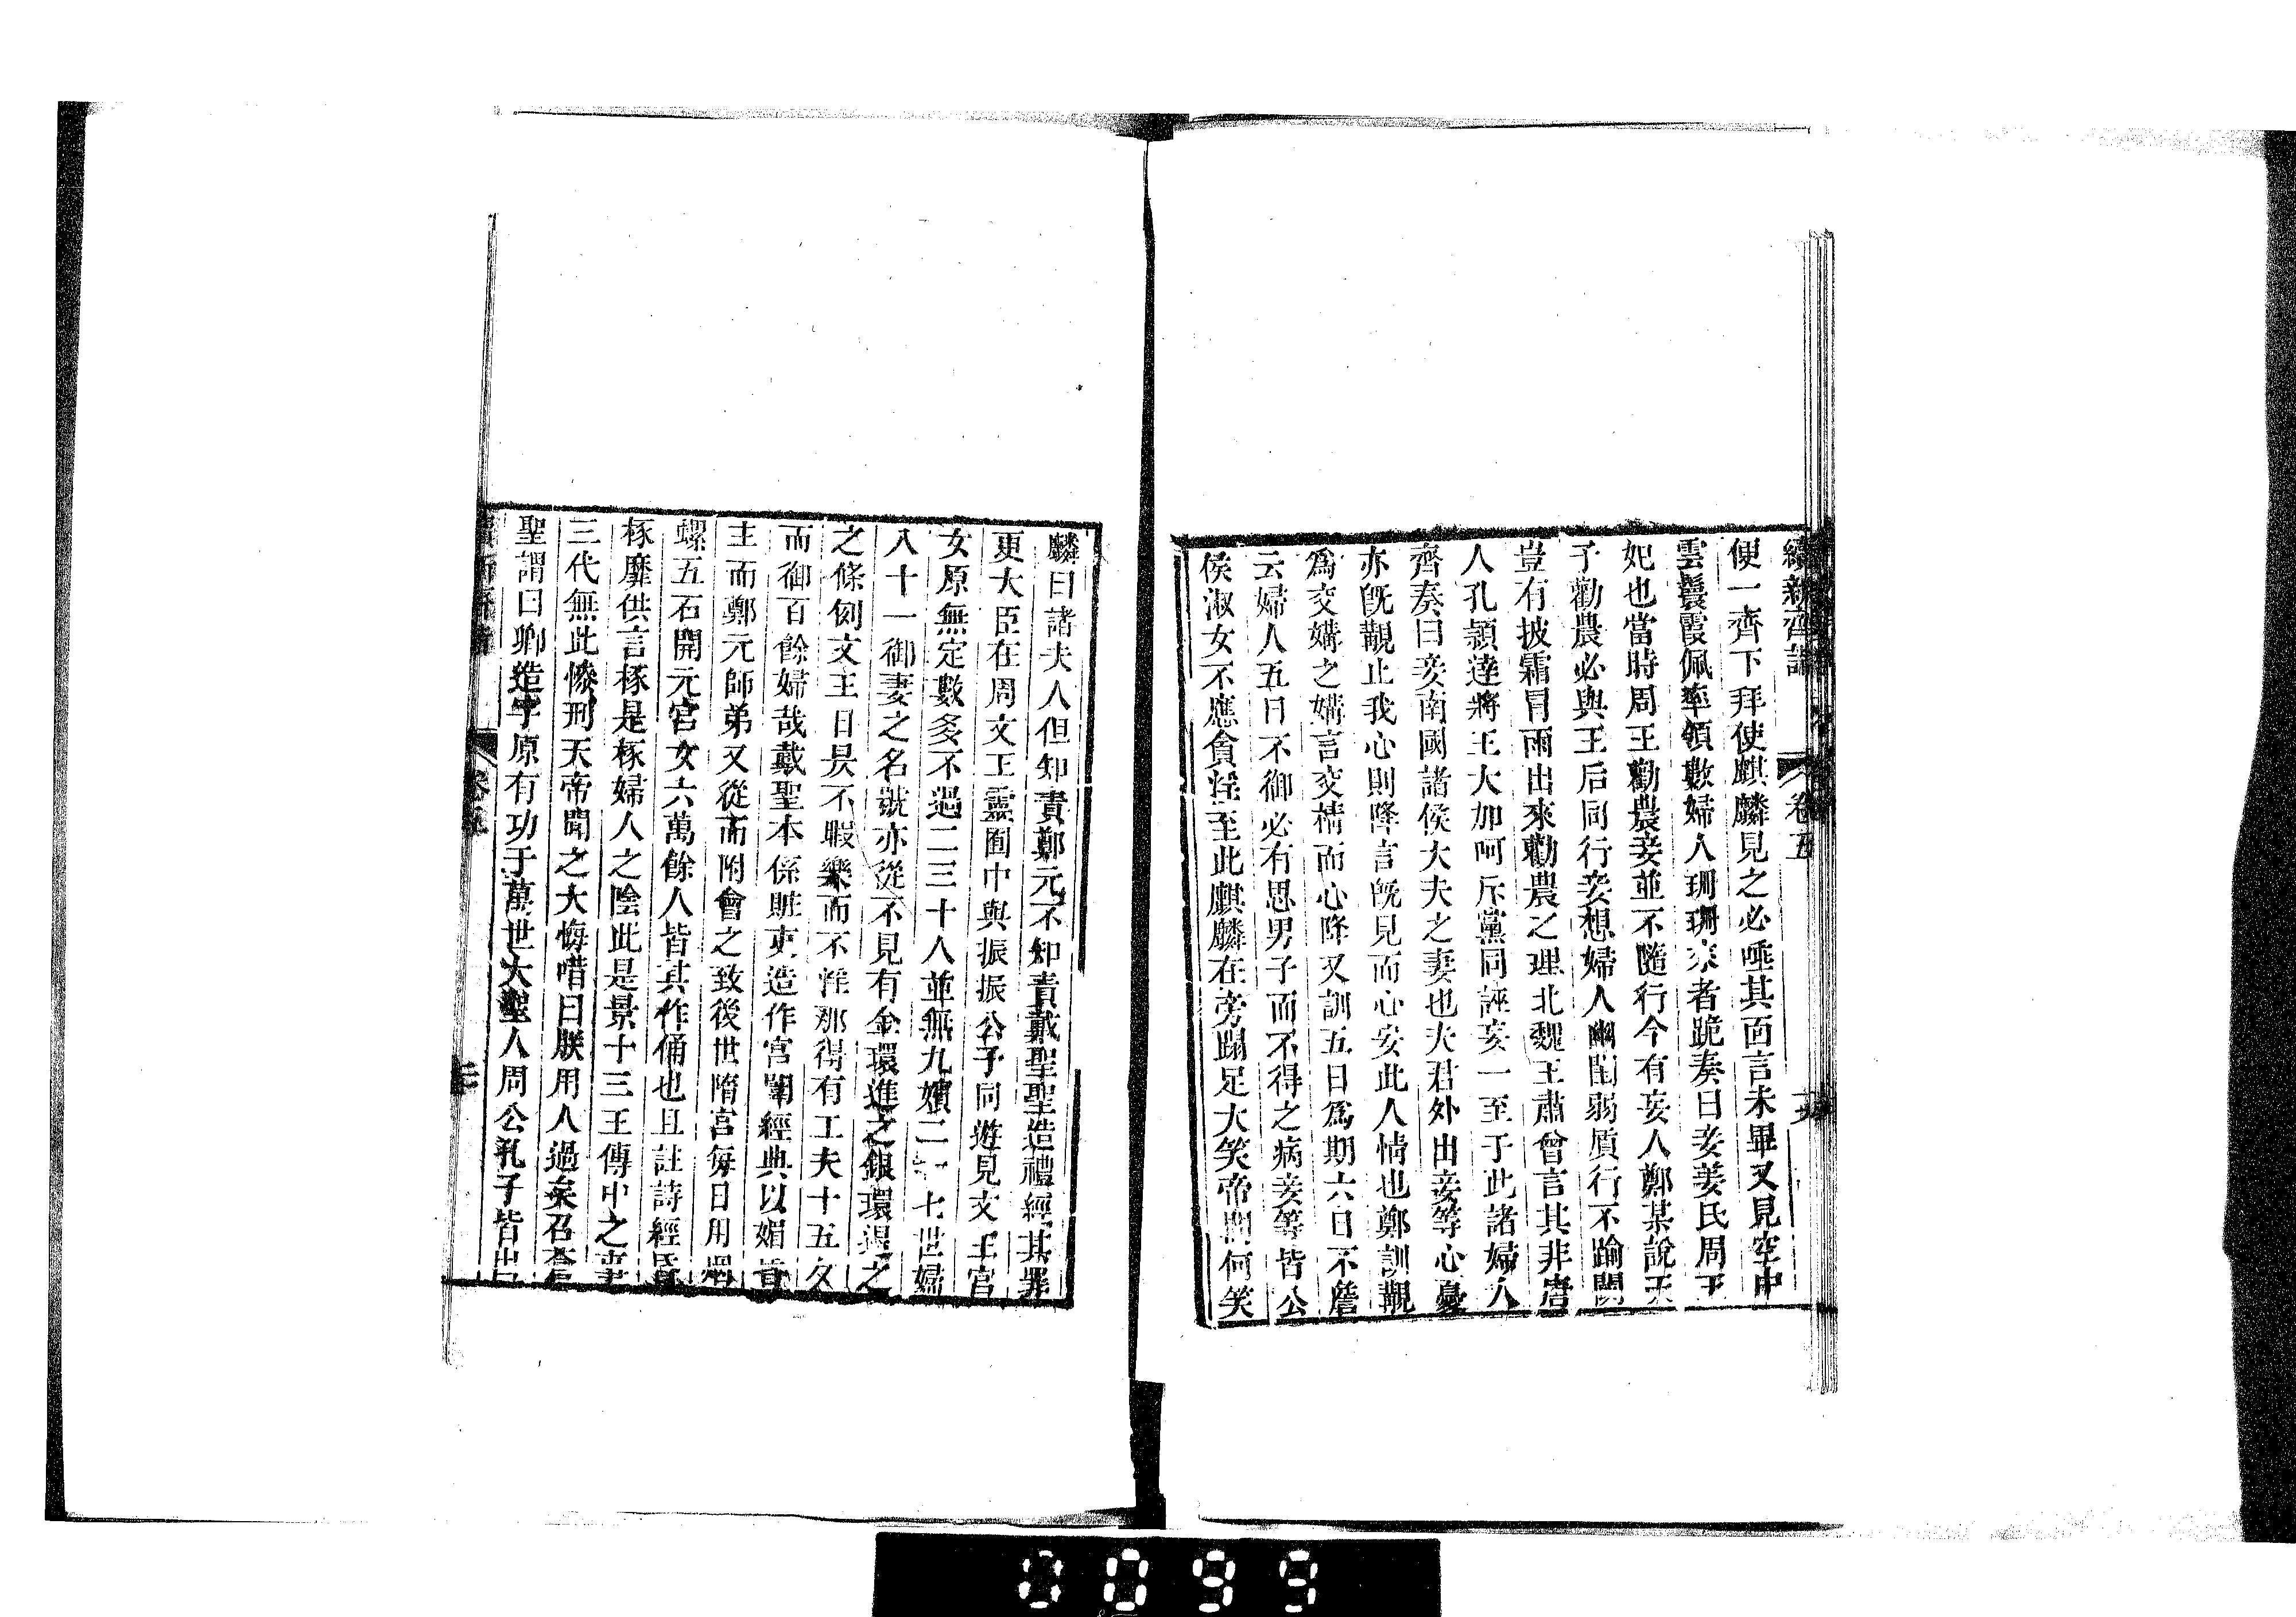 續新齊諧 卷五
便一齊下拜使麒麟見之必唾其面言未畢又見空中
雲鬟霞佩率領數婦人珊珊來者跪奏曰妾姜氏周王
妃也當時周王勸農妾並不隨行今有妄人鄭某說天
子勸農必與王后同行妾想婦人幽閨弱質行不踰閾
豈有披霜冒雨出來勸農之理北魏王肅曾言其非唐
人孔穎達將王大加呵斥黨同誣妄一至于此諸婦人
齊奏曰妾南國諸侯大夫之妻也夫君外出妾等心憂
亦旣觀止我心則降言旣見而心安此人情也鄭訓觀
爲交媾之媾言交精而心降又訓五日爲期六日不詹
云婦人五日不御必有思男子而不得之病妾等皆公
侯淑女不應貪淫至此麒麟在旁蹋足大笑帝問何笑
麟曰諸夫人但知責鄭元不知責戴聖聖造禮經其罪
更大臣在周文王靈囿中與振振公子同遊見文王宮
女原無定數多不過二三十人並無九嬪二十七世婦
八十一御妻之名號亦從不見有金環進之銀環退之
之條例文王日昃不暇樂而不淫那得有工夫十五夕
而御百餘婦哉戴聖本係贓吏造作宮闈經典以媚
主而鄭元師弟又從而附會之致後世隋宮每日用
螺五石開元宮女六萬餘人皆其作俑也且註詩經昏
椓靡供言椓是椓婦人之陰此是景十三王傳中之事
三代無此慘刑天帝聞之大悔喈曰朕用人過矣召倉
聖謂曰卿造字原有功于萬世大聖人周公孔子皆出
卷五
0099